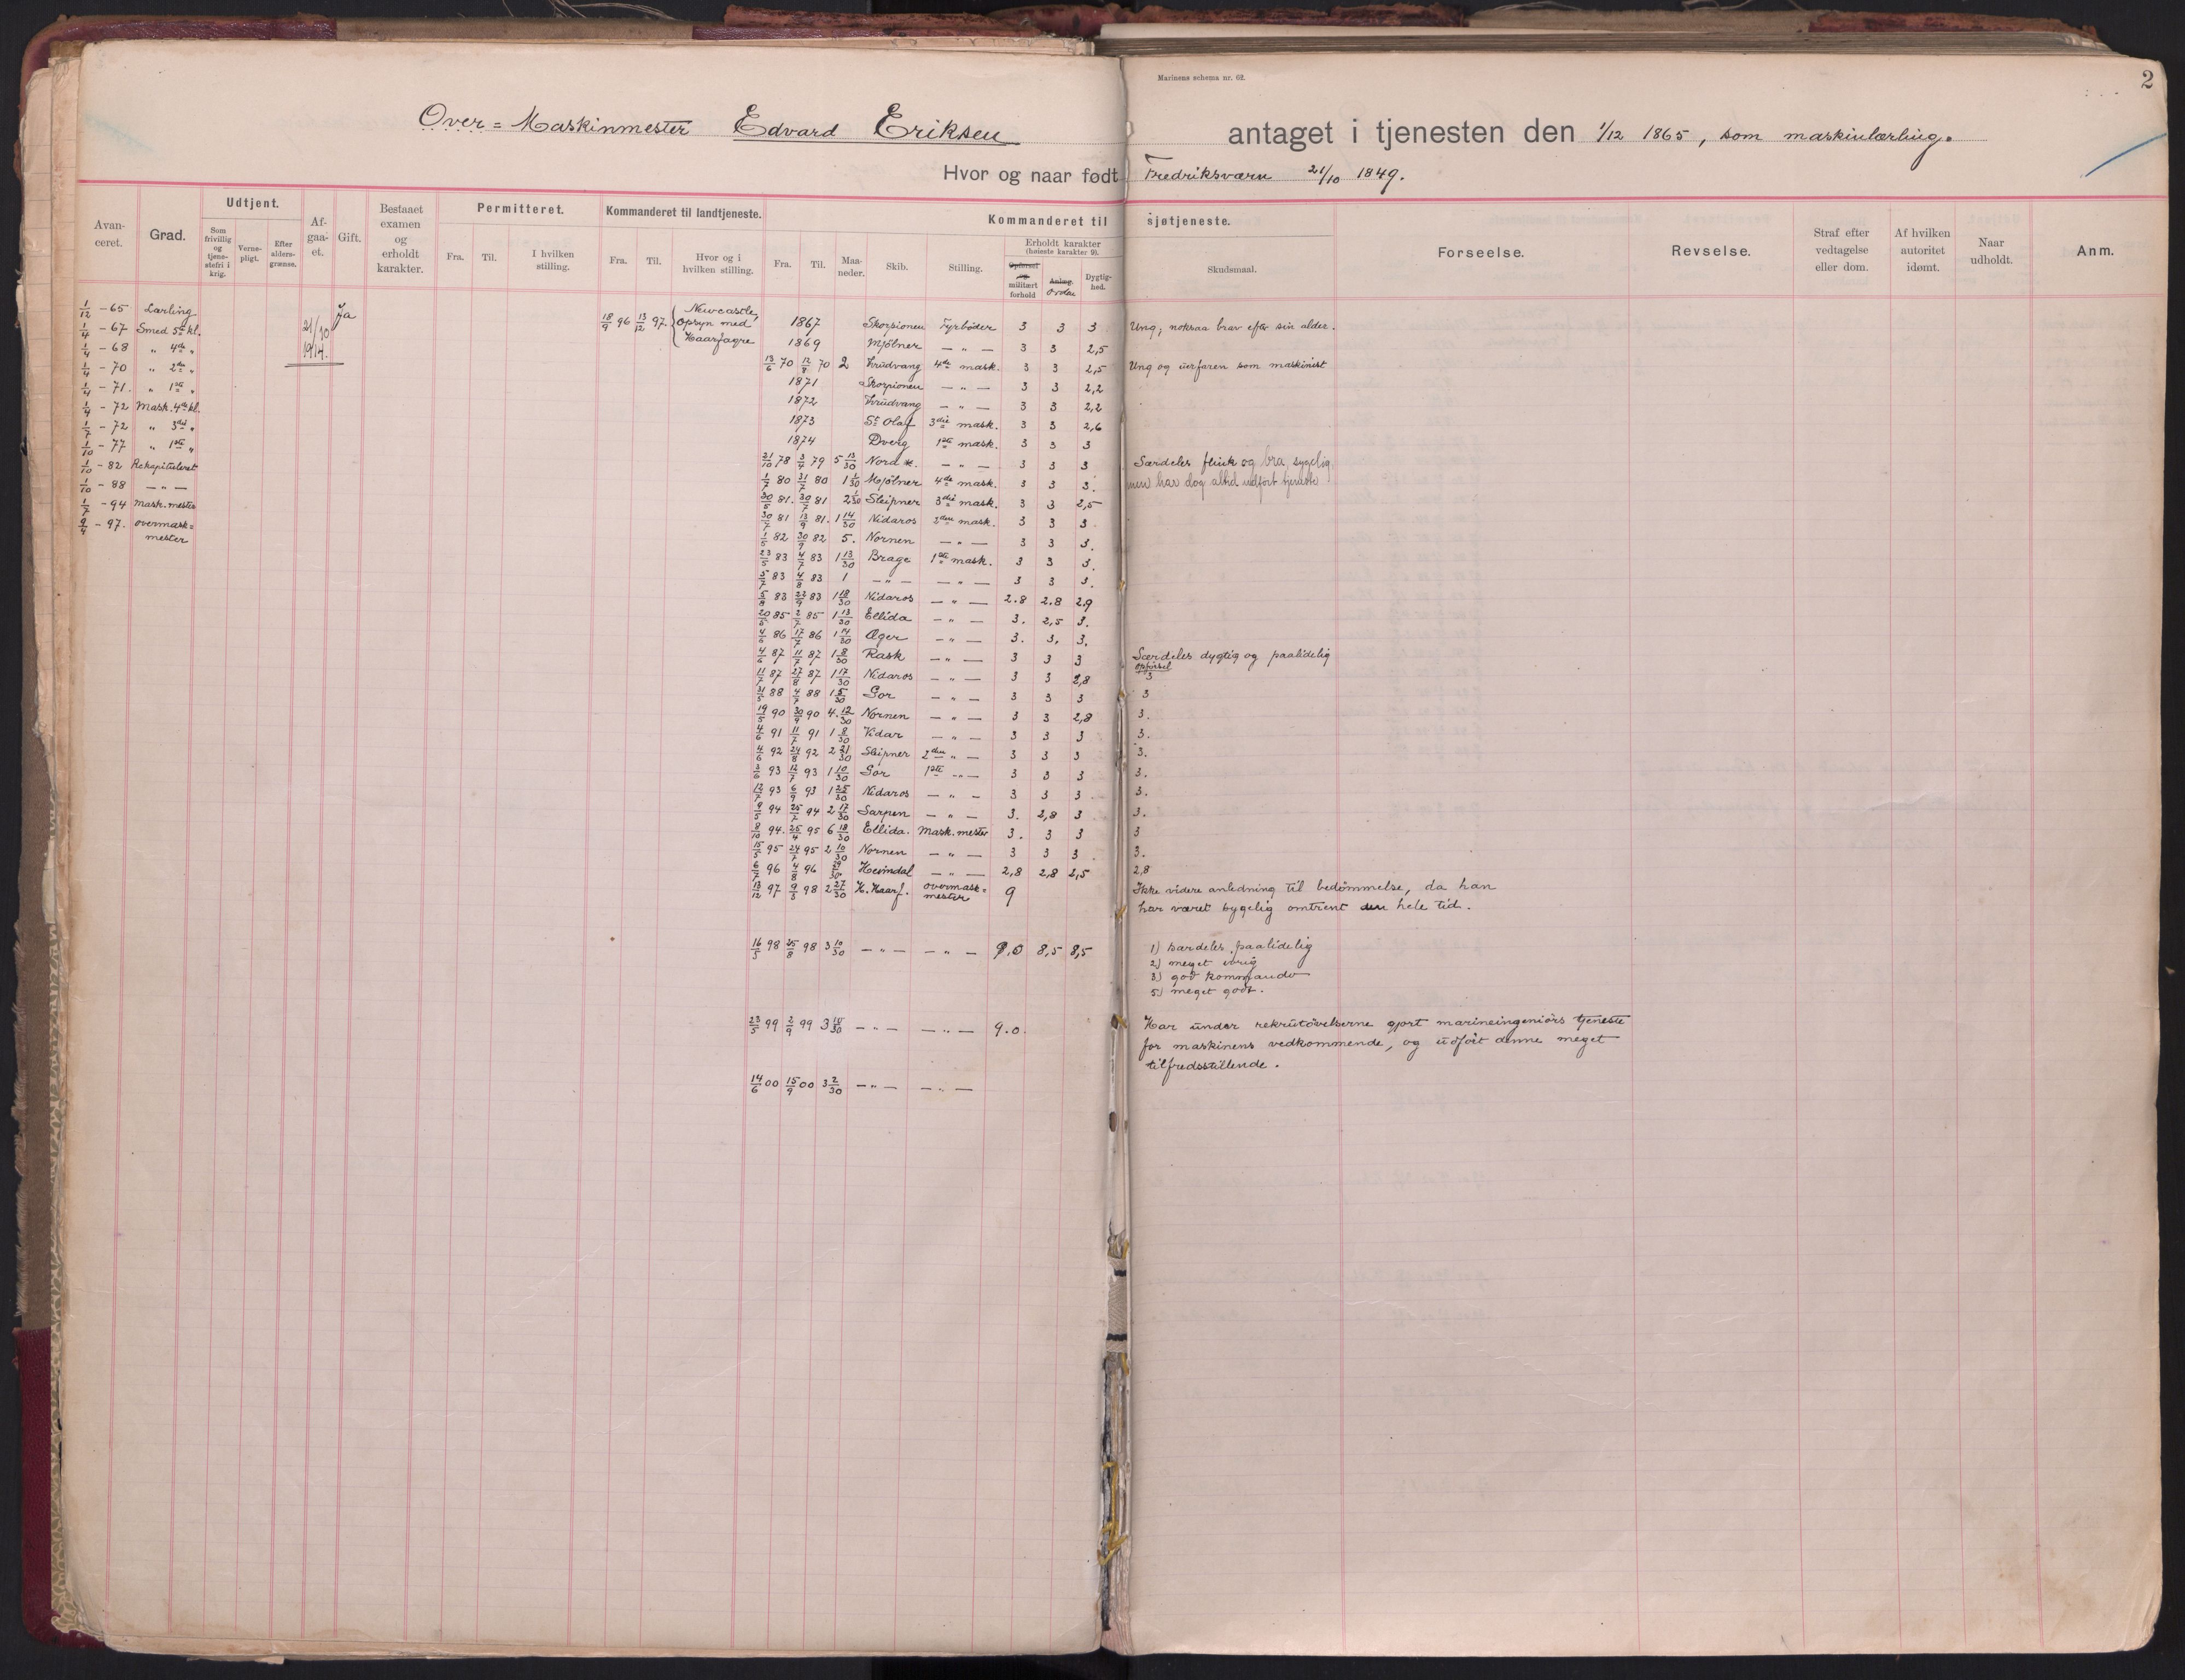 Marinens schema nr. 62.
2
Over = Maskinmester Edvard Eriksen antaget i tjenesten den 1/12 1865, som maskinlærling.
Hvor og naar født Fredriksværn 21/10 1849.
Avan-ceret. Grad. Udtjent. Som frivillig og tjene-stefri i krig. Verne-pligt. Efter alders-grænse. Af-gaa-et. Gift. Bestaaet examen og erholdt karakter. Permitteret. Fra. Til. I hvilken stilling. Kommanderet til landtjeneste. Fra. Til. Hvor og i hvilken stilling. Kommanderet til sjøtjeneste. Fra. Til. Maa-neder. Skib. Stilling. Erholdt karakter (høieste karakter 9). Opførsel og militært forhold Anlæg. Orden Dygtig-hed. Skudsmaal. Forseelse. Revselse. Straf efter vedtagelse eller dom. Af hvilken autoritet idømt. Naar udholdt. Anm.
1/12 - 65 Lærling
1/4 - 67 Smed 5te kl.
1/4 - 68 " 4de "
1/4 - 70 " 2de "
1/4 - 71. " 1ste "
1/4 - 72 Mask. 4de kl.
1/7 - 72 " 3die "
1/10 - 77 " 1ste "
1/10 - 82 Rekapituleret
1/10 - 88 — " —
1/7 - 94 Mask. mester
9/4 - 97. overmask=
mester
21/10
1914.
Ja
18/9 96 13/12 97. { Newcastle,
Opsyn med
Haarfagre
1867 Skorpionen Fyrbøder 3 3 3 Ung, noksaa brav efter sin alder.
1869 Mjølner — " — 3 3 2,5
13/6 70 12/8 70 2 Thrudvang 4de mask. 3 3 2,5 Ung og uerfaren som maskinist
1871 Skorpionen — " — 3 3 2,2
1872 Thrudvang — " — 3 3 2,2
1873 St Olaf 3die mask. 3 3 2,6
1874 Dverg 1ste mask. 3 3 3
21/10 78 3/4 79 5 13/30 Nord st. — " — 3 3 3 Særdeles flink og bra, sygelig,
1/7 80 31/7 80 1 1/30 Mjølner 4de mask. 3 3 3. men har dog altid udført tjeneste
30/5 81. 30/7 81 2 1/30 Sleipner 3die mask. 3 3 2,5
30/7 81 13/9 81. 1 14/30 Nidaros 2den mask. 3 3 3
1/5 82 30/9 82 5. Nornen — " — 3 3 3.
23/5 83 4/7 83 1 13/30 Brage 1ste mask. 3 3 3.
5/7 83 4/8 83 1 — " — — " — 3 3 3.
5/8 83 22/9 83 1 18/30 Nidaros — " — 2.8 2.8 2.9
20/5 85 2/7 85 1 13/30 Ellida — " — 3. 2,5 3.
4/6 86 17/7 86 1 14/30 Æger — " — 3. 3. 3.
4/6 87 11/7 87 1 8/30 Rask — " — 3 3 3 Særdeles dygtig og paalidelig
opførsel
11/7 87 27/8 87 1 17/30 Nidaros — " — 3 3 2,8 3
31/5 88 4/7 88 1 5/30 Gor — " — 3 3 3 3
19/5 90 30/9 90 4. 12/30 Nornen — " — 3 3 2,8 3.
4/6 91 11/7 91 1 8/30 Vidar — " — 3 3 3 3.
4/6 92 24/8 92 2 21/30 Sleipner 2den " — 3 3 3 3.
3/6 93 12/7 93 1 10/30 Gor 1ste " — 3 3 3 3.
12/7 93 6/9 93 1 25/30 Nidaros — " — 3 3 3 3.
9/5 94 25/7 94 2 17/30 Sarpen — " — 3. 2,8 3 3.
8/10 94. 25/4 95 6 18/30 Ellida. Mask. mester 3. 3 3 3
15/5 95 24/7 95 2 10/30 Nornen — " — 3 3 3 3.
6/7 96 4/8 96 29/30 Heimdal — " — 2,8 2,8 2,5 2,8
13/12 97 9/3 98 2 27/30 H. Haarf. overmask= mester 9 Ikke videre anledning til bedömmelse, da han
har været sygelig omtrent den hele tid.
16/5 98 25/8 98 3 10/30 — " — — " — 9,0 8,5 8,5 1) særdeles paalidelig
2) meget ivrig
3) god kommando
5) meget godt.
23/5 99 2/9 99 3 10/30 — " — — " — 9.0. Har under rekrutövelserne gjort marineingeniörs tjeneste
for maskinens vedkommende, og udført denne meget
tilfredsstillende.
14/6 00 15/9 00 3 2/30 — " — — " —